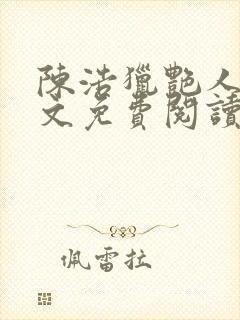 陳浩獵艷人
文免費閱讀
佩雷拉